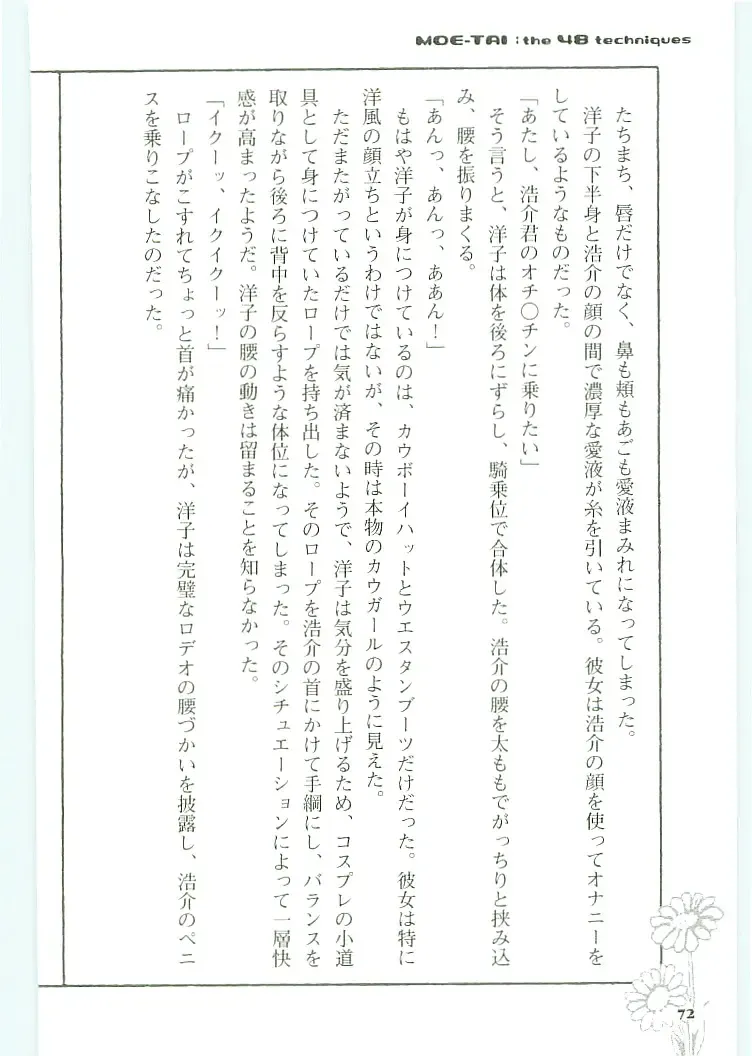 MOE-TAI : the 48 techniques
たちまち、唇だけでなく、鼻も頬もあごも愛液まみれになってしまった。
洋子の下半身と浩介の顔の間で濃厚な愛液が糸を引いている。彼女は浩介の顔を使ってオナニーを
しているようなものだった。
「あたし、浩介君のオチ〇チンに乗りたい」
そう言うと、洋子は体を後ろにずらし、騎乗位で合体した。浩介の腰を太ももでがっちりと挟み込
み、腰を振りまくる。
「あんっ、あんっ、ああん！」
もはや洋子が身につけているのは、カウボーイハットとウエスタンブーツだけだった。彼女は特に
洋風の顔立ちというわけではないが、その時は本物のカウガールのように見えた。
ただまたがっているだけでは気が済まないようで、洋子は気分を盛り上げるため、コスプレの小道
具として身につけていたロープを持ち出した。そのロープを浩介の首にかけて手綱にし、バランスを
取りながら後ろに背中を反らすような体位になってしまった。そのシチュエーションによって一層快
感が高まったようだ。洋子の腰の動きは留まることを知らなかった。
「イクーッ、イクイクーッ！」
ロープがこすれてちょっと首が痛かったが、洋子は完璧なロデオの腰づかいを披露し、浩介のペニ
スを乗りこなしたのだった。
72